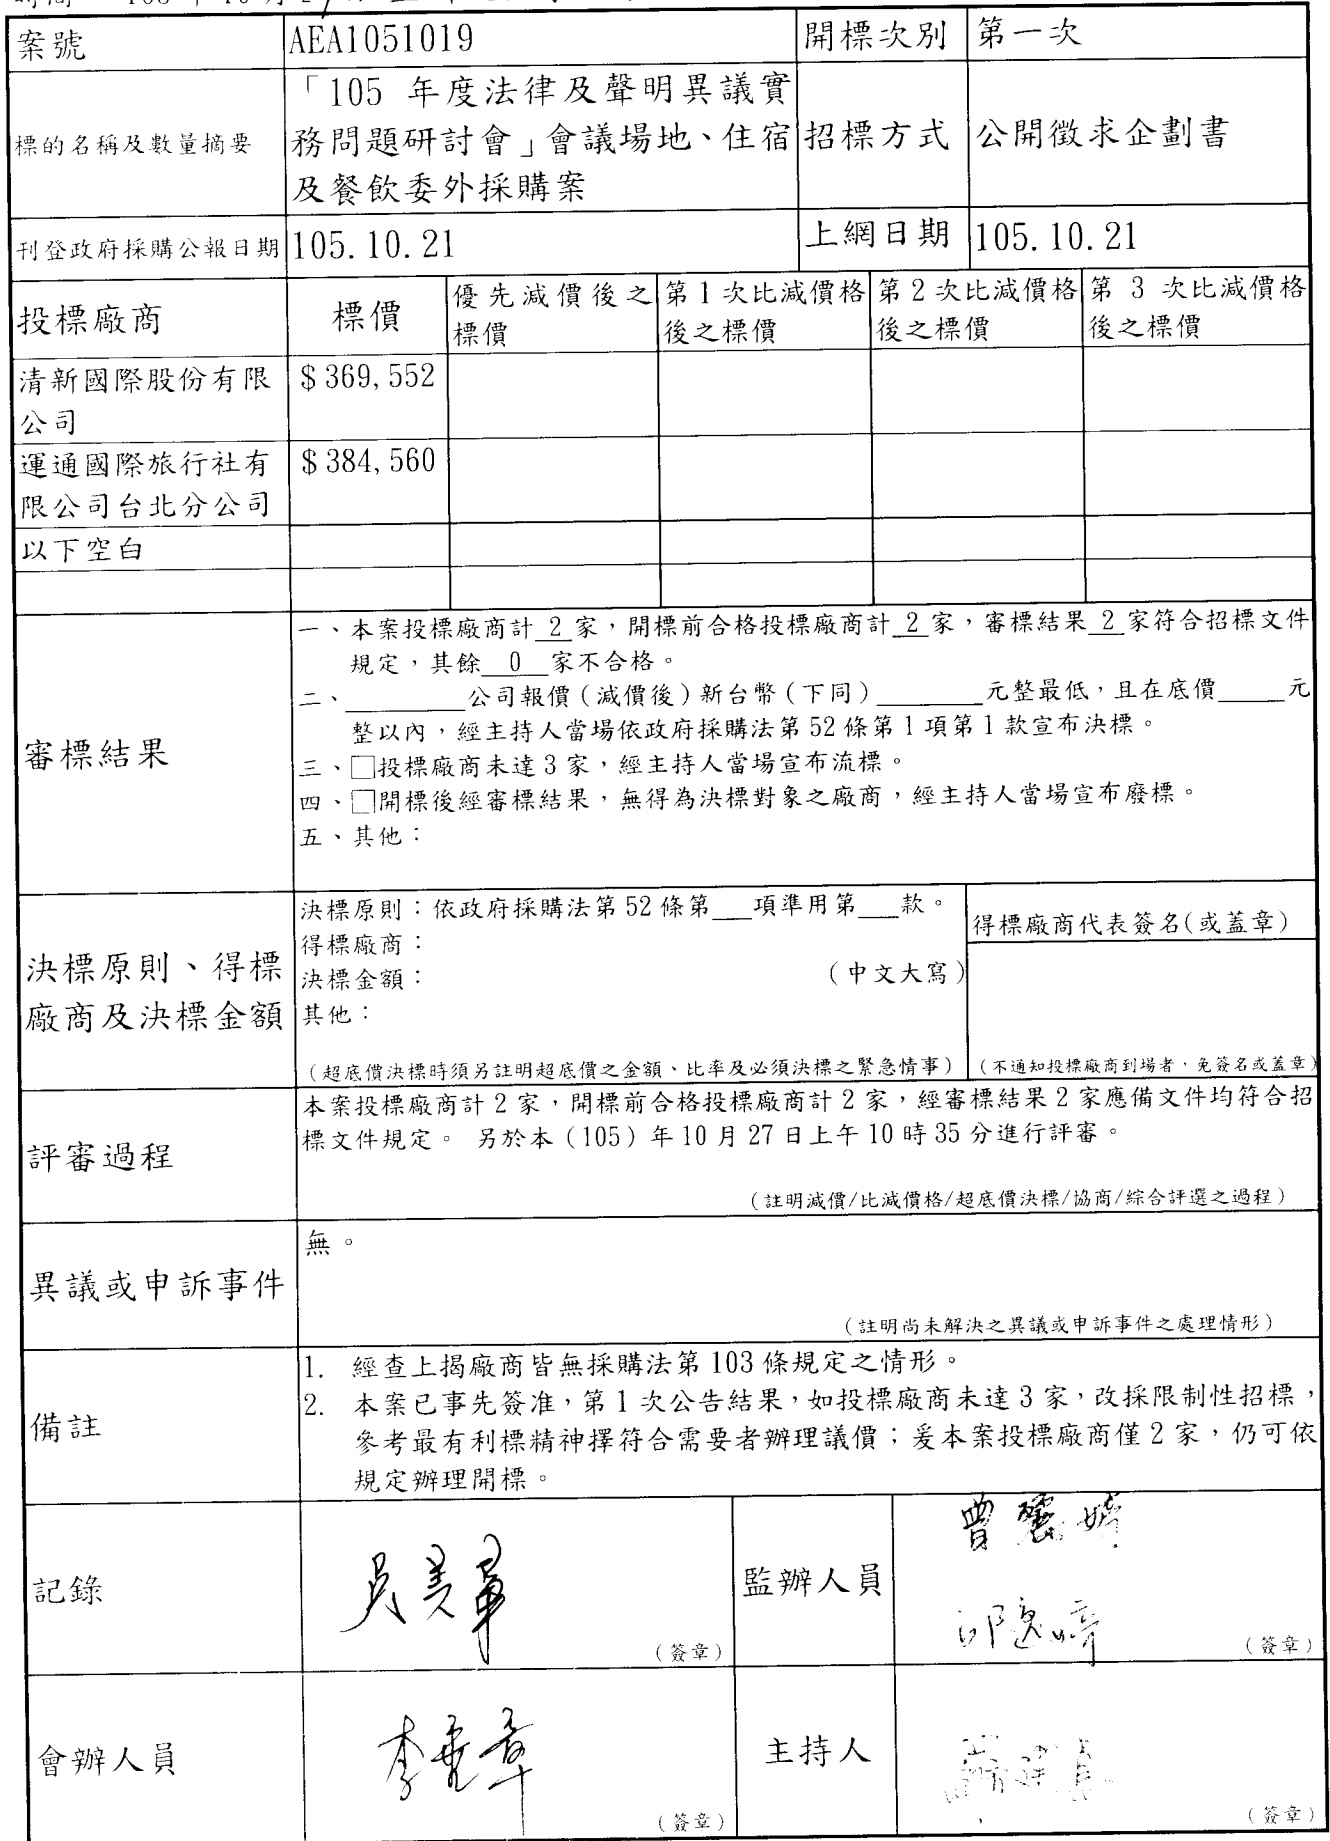 案號 AEA1051019 開標次別 第一次
標的名稱及數量摘要
「105 年度法律及聲明異議實
務問題研討會」會議場地、住宿
及餐飲委外採購案
招標方式 公開徵求企劃書
刊登政府採購公報日期 105.10.21 上網日期 105.10.21
投標廠商 標價
優先減價後之
標價
第1次比減價格
後之標價
第2次比減價格
後之標價
第 3 次比減價格
後之標價
清新國際股份有限 $369,552
公司
運通國際旅行社有 $384,560
限公司台北分公司
以下空白
審標結果
一、本案投標廠商計 2 家，開標前合格投標廠商計 2 家，審標結果 2 家符合招標文件
規定，其餘 0 家不合格。
二、________公司報價（減價後）新台幣（下同）_______元整最低，且在底價____元
整以內，經主持人當場依政府採購法第52條第1項第1款宣布決標。
三、□投標廠商未達3家，經主持人當場宣布流標。
四、□開標後經審標結果，無得為決標對象之廠商，經主持人當場宣布廢標。
五、其他：
決標原則、得標
廠商及決標金額
決標原則：依政府採購法第52條第__項準用第__款。
得標廠商：
決標金額： （中文大寫）
其他：
（超底價決標時須另註明超底價之金額、比率及必須決標之緊急情事）
得標廠商代表簽名(或蓋章)
（不通知投標廠商到場者，免簽名或蓋章）
評審過程
本案投標廠商計2家，開標前合格投標廠商計2家，經審標結果2家應備文件均符合招
標文件規定。 另於本（105）年10月27日上午10時35分進行評審。
（註明減價/比減價格/超底價決標/協商/綜合評選之過程）
異議或申訴事件
無。
（註明尚未解決之異議或申訴事件之處理情形）
備註
1. 經查上揭廠商皆無採購法第103條規定之情形。
2. 本案已事先簽准，第1次公告結果，如投標廠商未達3家，改採限制性招標，
參考最有利標精神擇符合需要者辦理議價；爰本案投標廠商僅2家，仍可依
規定辦理開標。
記錄 （簽章）
監辦人員 （簽章）
會辦人員 （簽章）
主持人 （簽章）